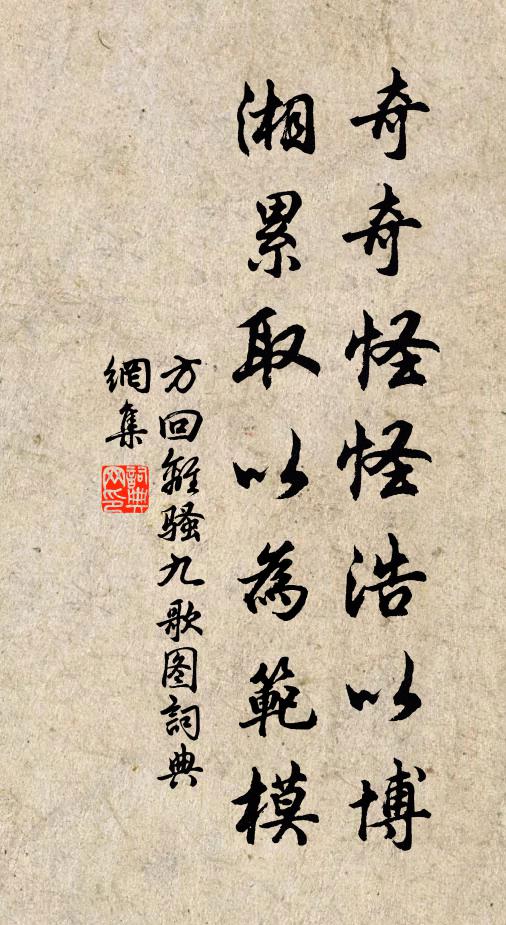 奇奇怪怪浩以博
湘累取以為範模
方回離騷九歌图詞典
網集
詞典網印